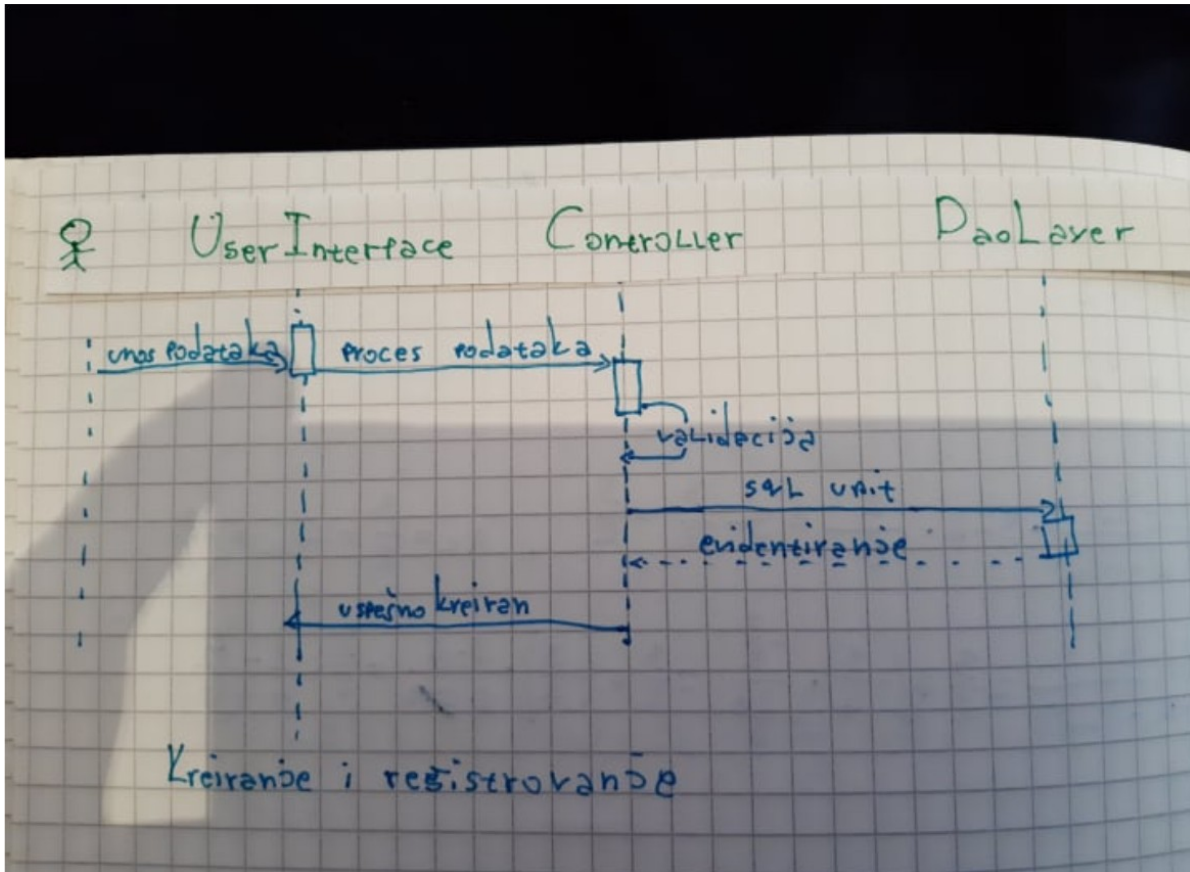 UserInterface Controller DaoLayer
unos podataka proces podataka
validacija
sql upit
evidentiranje
uspešno kreiran
Kreiranje i registrovanje